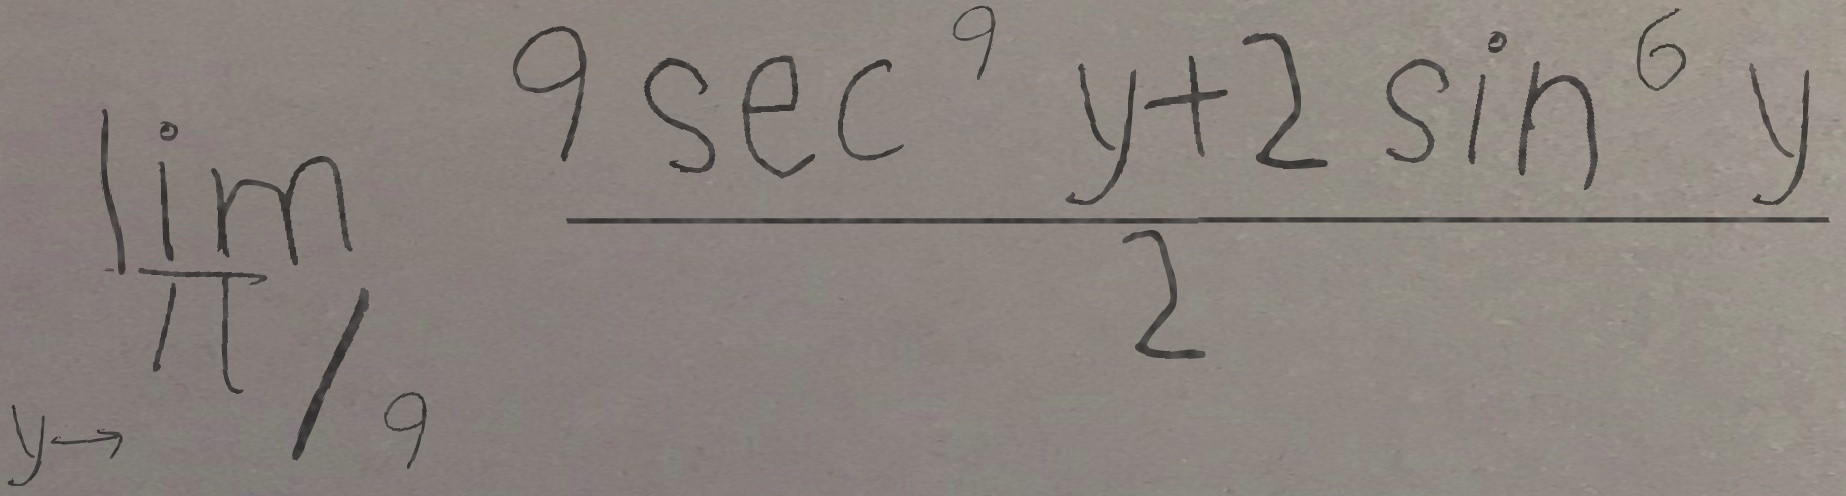 \lim_{y \to \pi/9} \frac{9 \sec^9 y + 2 \sin^6 y}{2}